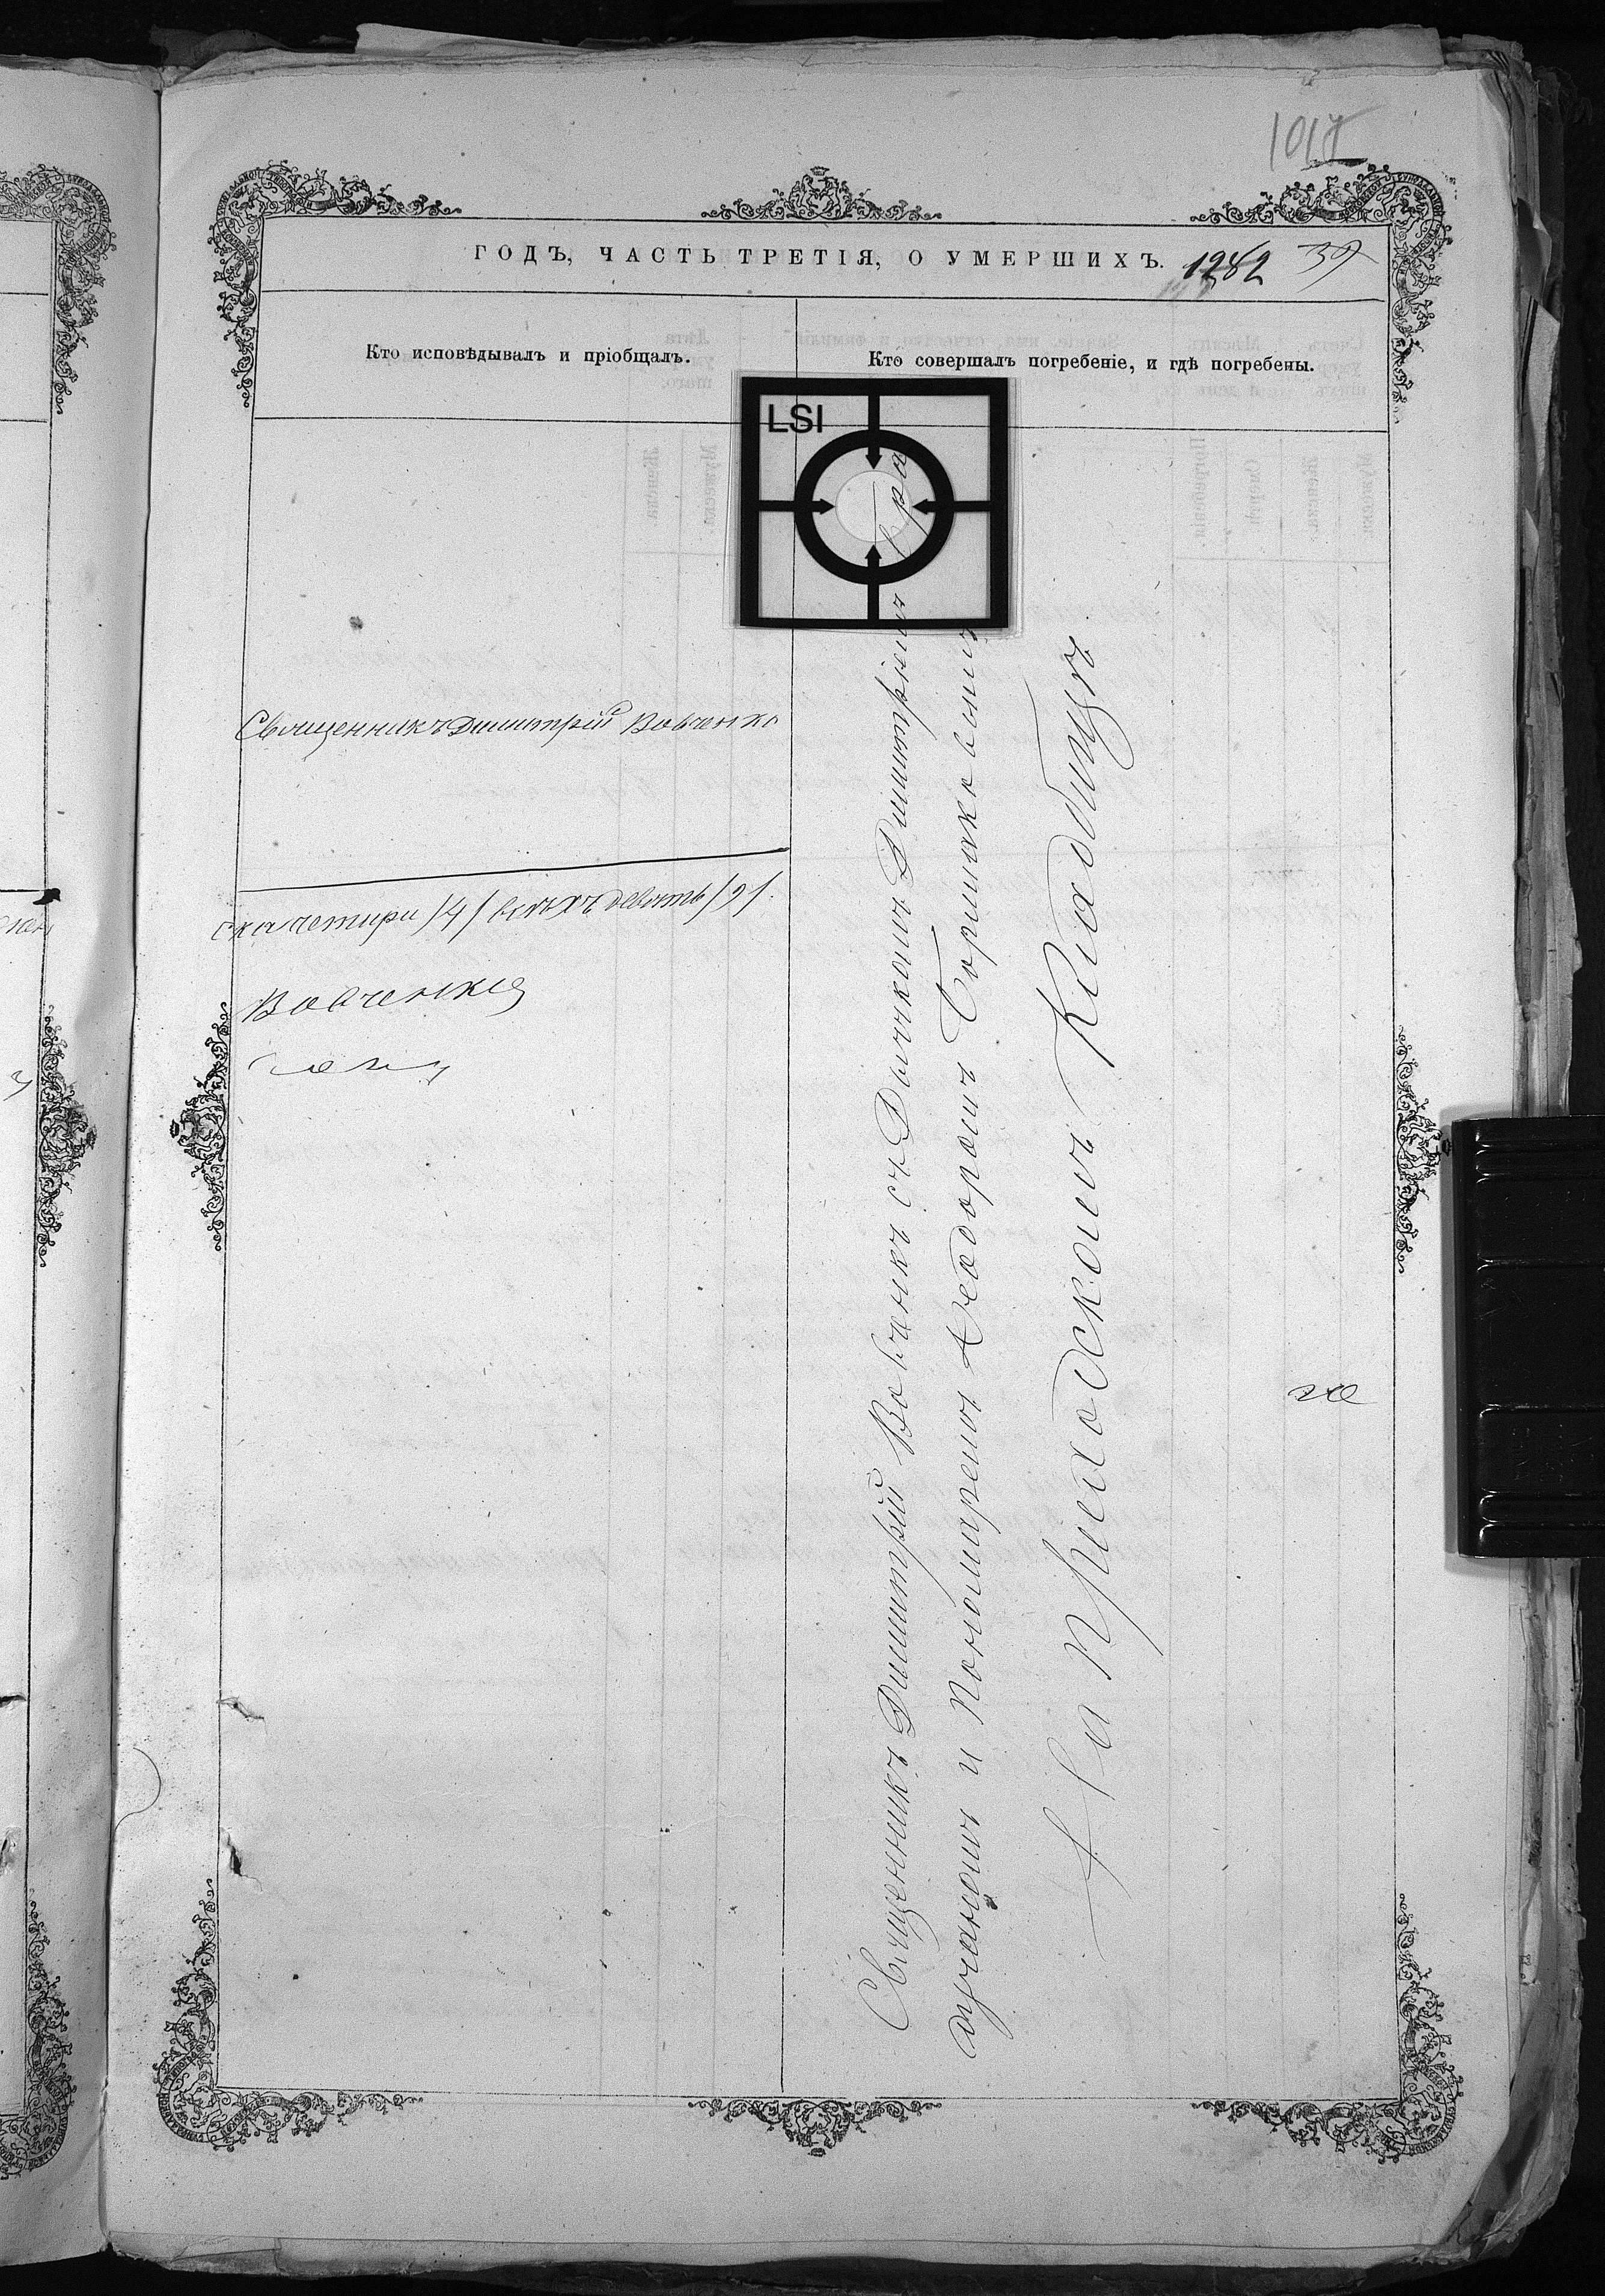 1017
ГОДЪ, ЧАСТЬ ТРЕТІЯ, О УМЕРШИХЪ. 1282 39
Кто исповѣдывалъ и пріобщалъ.
Кто совершалъ погребеніе, и гдѣ погребены.
LSI
Священникъ Димитрій Вовченко
ска четыри /4/ всѣхъ девять /9/.
Вовченко
Священникъ Димитрій Вовченко съ Дьячкомъ Димитріемъ
и Пономаремъ Ѳеодоромъ
На Приходскомъ Кладбищѣ